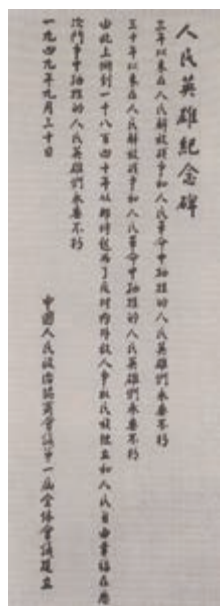 人民英雄紀念碑
三年以來在人民解放戰爭和人民革命中犧牲的人民英雄們永垂不朽
三十年以來在人民解放戰爭和人民革命中犧牲的人民英雄們永垂不朽
由此上溯到一千八百四十年從那時起為了反對內外敵人爭取民族獨立和人民自由幸福在歷
次鬥爭中犧牲的人民英雄們永垂不朽
一九四九年九月三十日 中國人民政治協商會議第一屆全體會議建立